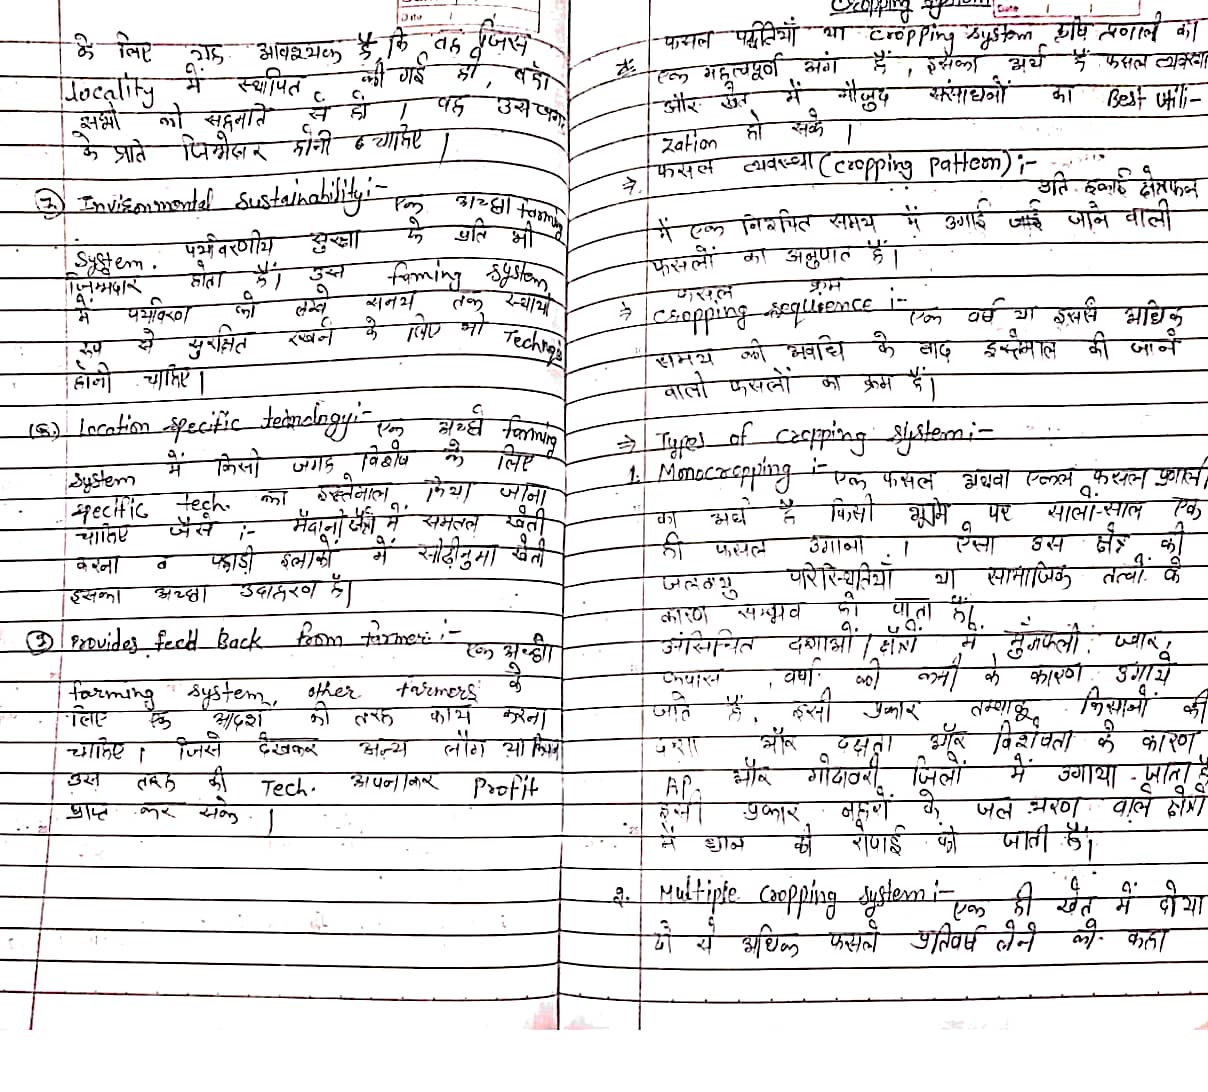 Date
के लिए यह आवश्यक है, कि वह जिस
locality में स्थापित की गई हो, वहां
सभी की सहमति से हो । वह उस
के प्रति जिम्मेदार होनी चाहिए ।
(7) Environmental Sustainability:- एक अच्छा farming
system. पर्यावरणीय सुरक्षा के प्रति भी
जिम्मेदार होता है। उस farming system
में पर्यावरण को लम्बे समय तक स्थायी
रूप से सुरक्षित रखने के लिए भी Technology
होनी चाहिए।
(8.) Location specific technology:- एक अच्छे farming
system में किसी जगह विशेष के लिए
specific tech. का इस्तेमाल किया जाना
चाहिए जैसे :- मैदानी क्षेत्रों में समतल खेती
करना व पहाड़ी इलाकों में सीढ़ीनुमा खेती
इसका अच्छा उदाहरण है।
(9) Provides feed Back from farmer:- एक अच्छी
farming system, other farmers के
लिए एक आदर्श की तरह कार्य करना
चाहिए। जिसे देखकर अन्य लोग या किसान
उस तरह की Tech. अपनाकर Profit
प्राप्त कर सके ।
Cropping System
Date
फसल पद्धतियाँ या cropping system कृषि प्रणाली का
एक महत्वपूर्ण अंग है, इसका अर्थ है फसल व्यवस्था
और खेत में मौजूद संसाधनों का Best utili-
zation हो सके ।
⇒ फसल व्यवस्था (cropping pattern) :- प्रति इकाई क्षेत्रफल
में एक निश्चित समय में उगाई जाई जाने वाली
फसलों का अनुपात है।
फसल क्रम
⇒ cropping sequence :- एक वर्ष या इससे अधिक
समय की अवधि के बाद इस्तेमाल की जाने
वाली फसलों का क्रम है।
⇒ Types of cropping system:-
1. Monocropping :- एक फसल अथवा एकल फसल प्रणाली
का अर्थ है किसी भूमि पर सालों-साल एक
ही फसल उगाना । ऐसा उस क्षेत्र की
जलवायु परिस्थितियों या सामाजिक तत्वों के
कारण सम्भव हो पाता है।
असिंचित दशाओं/क्षेत्रों में मुंगफली, ज्वार,
कपास, वर्षा की कमी के कारण उगाये
जाते हैं, इसी प्रकार तम्बाकू किसानों की
दशा और दक्षता और विशेषता के कारण
AP और गोदावरी जिलों में उगाया जाता है
इसी प्रकार नहरों के जल भरण वाले क्षेत्रों
में धान की रोपाई की जाती है।
2. Multiple Cropping System:- एक ही खेत में दो या
दो से अधिक फसलें प्रतिवर्ष लेने को कहा